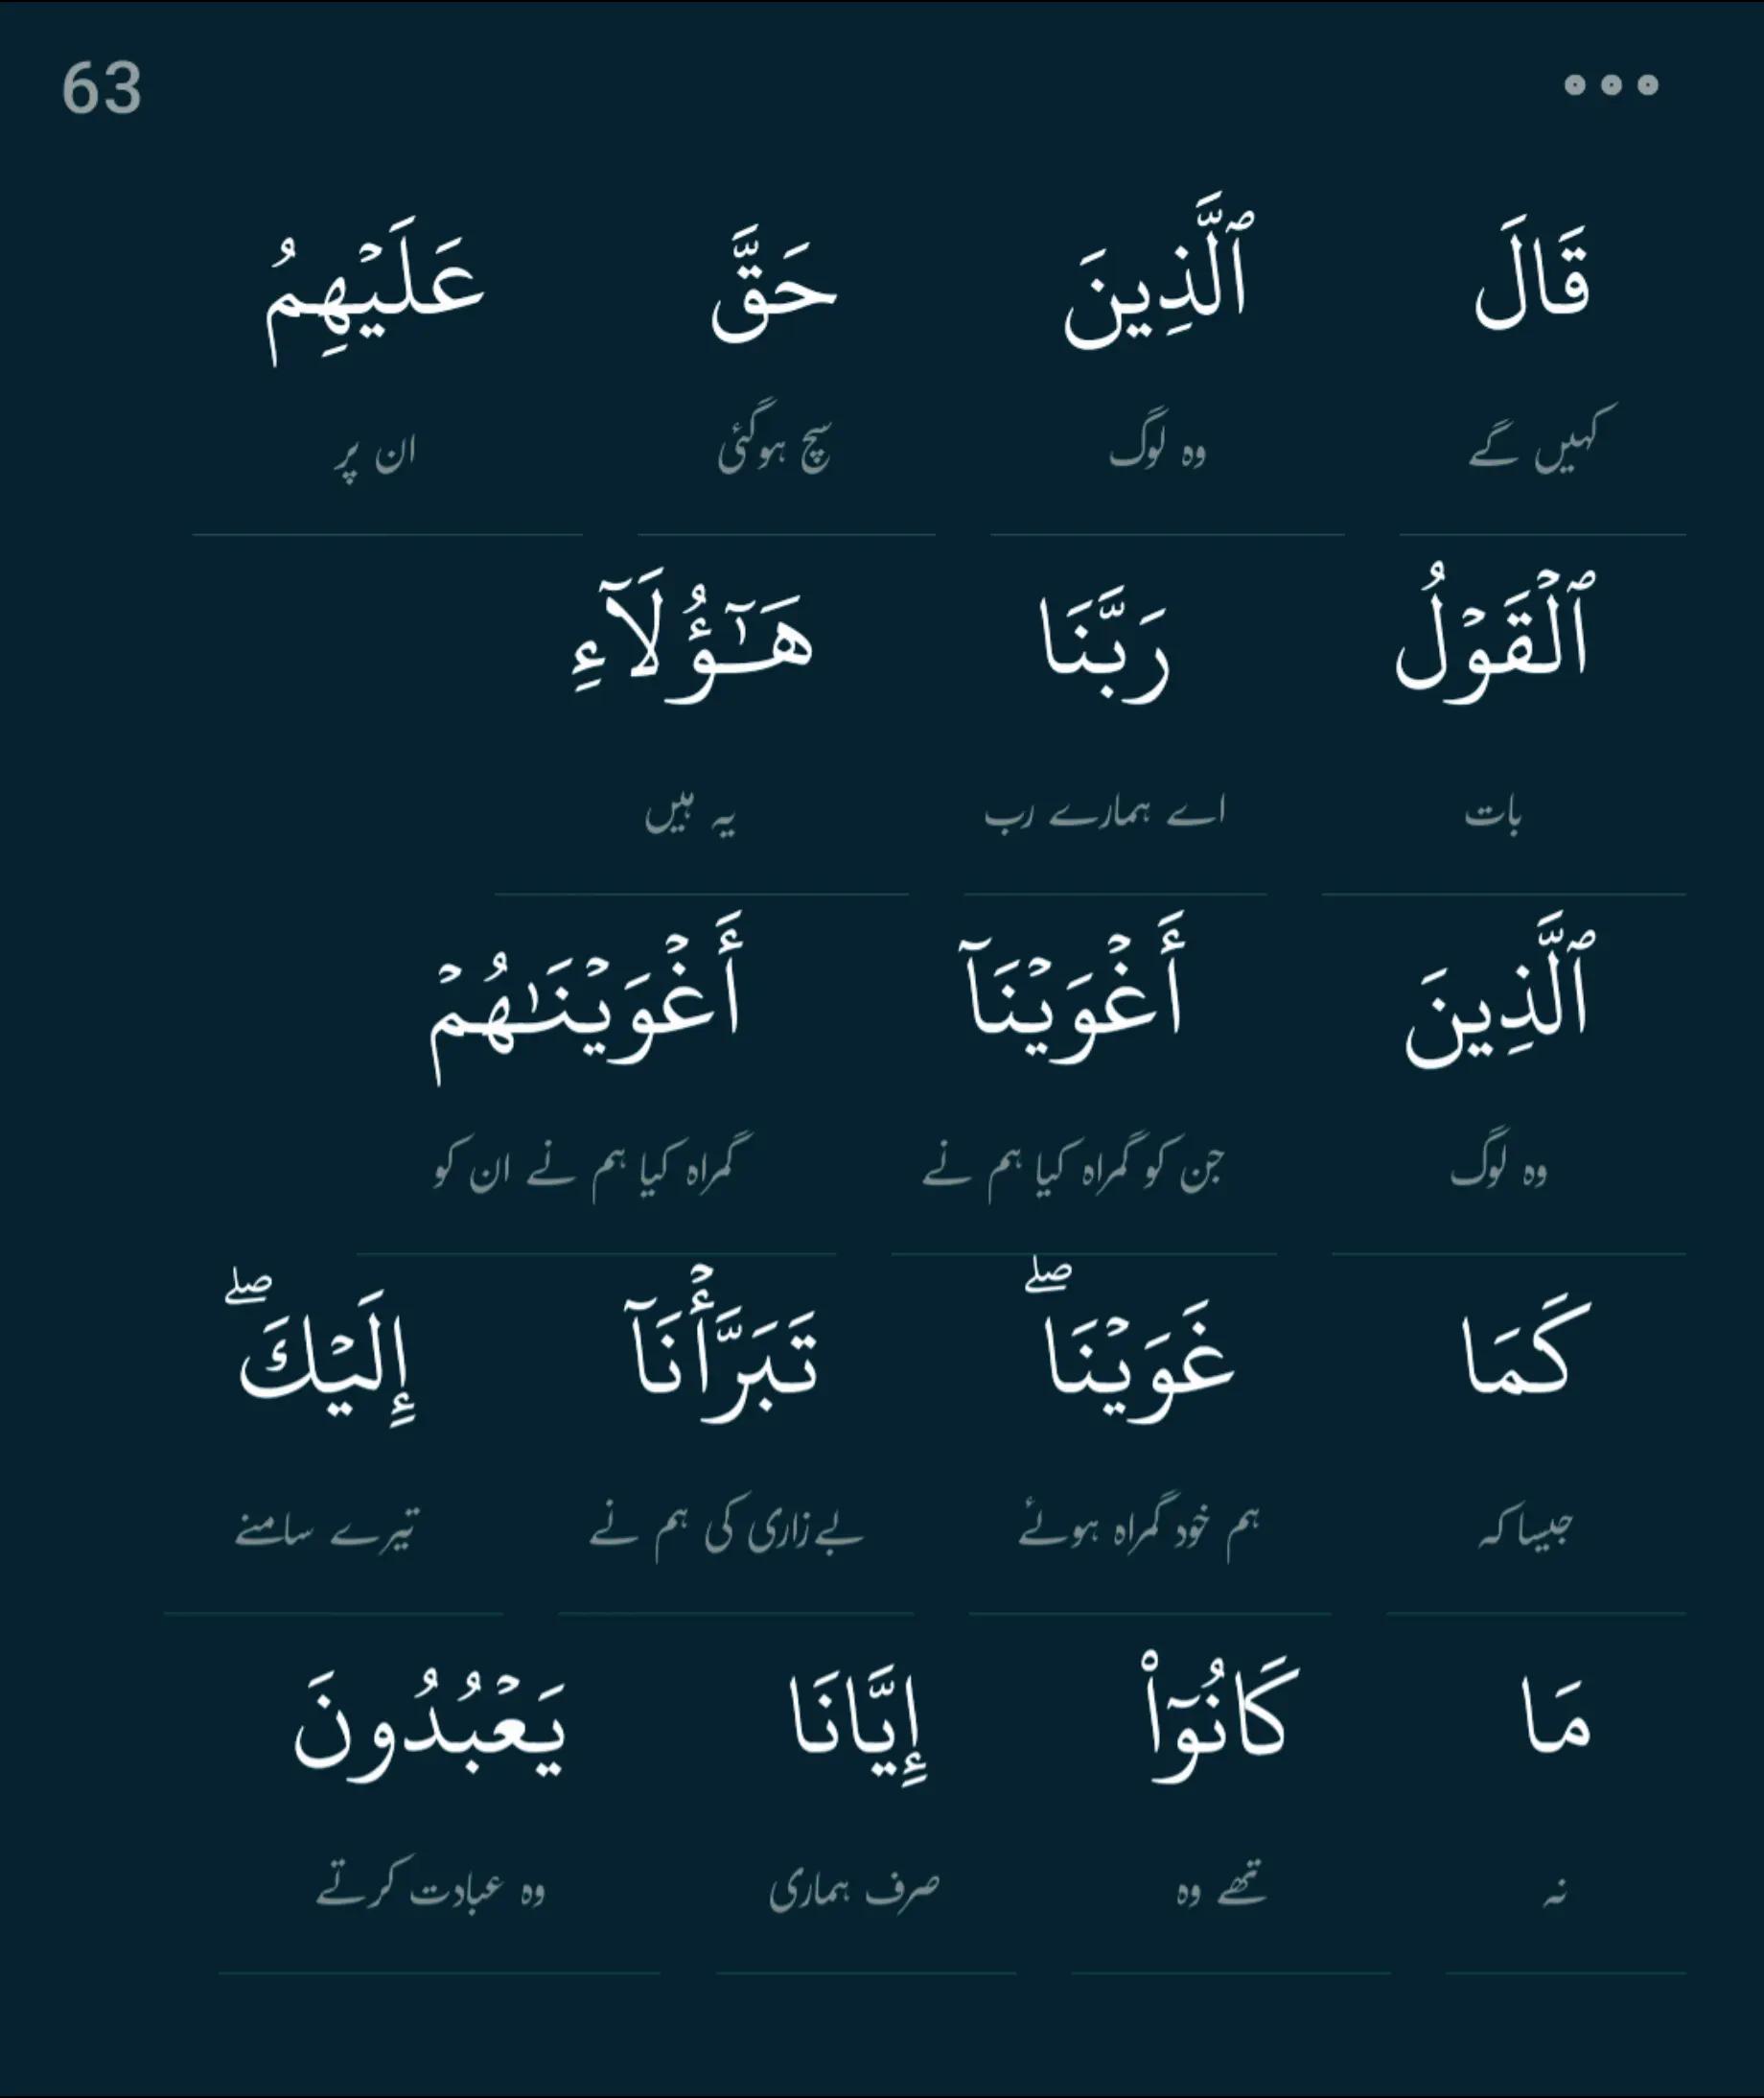 63
قَالَ ٱلَّذِينَ حَقَّ عَلَيۡهِمُ
کہیں گے وہ لوگ سچ ہوگئی ان پر
ٱلۡقَوۡلُ رَبَّنَا هَـٰٓؤُلَآءِ
بات اے ہمارے رب یہ ہیں
ٱلَّذِينَ أَغۡوَيۡنَآ أَغۡوَيۡنَـٰهُمۡ
وہ لوگ جن کو گمراہ کیا ہم نے گمراہ کیا ہم نے ان کو
كَمَا غَوَيۡنَاۖ تَبَرَّأۡنَآ إِلَيۡكَۖ
جیسا کہ ہم خود گمراہ ہوئے بےزاری کی ہم نے تیرے سامنے
مَا كَانُوٓاْ إِيَّانَا يَعۡبُدُونَ
نہ تھے وہ صرف ہماری وہ عبادت کرتے